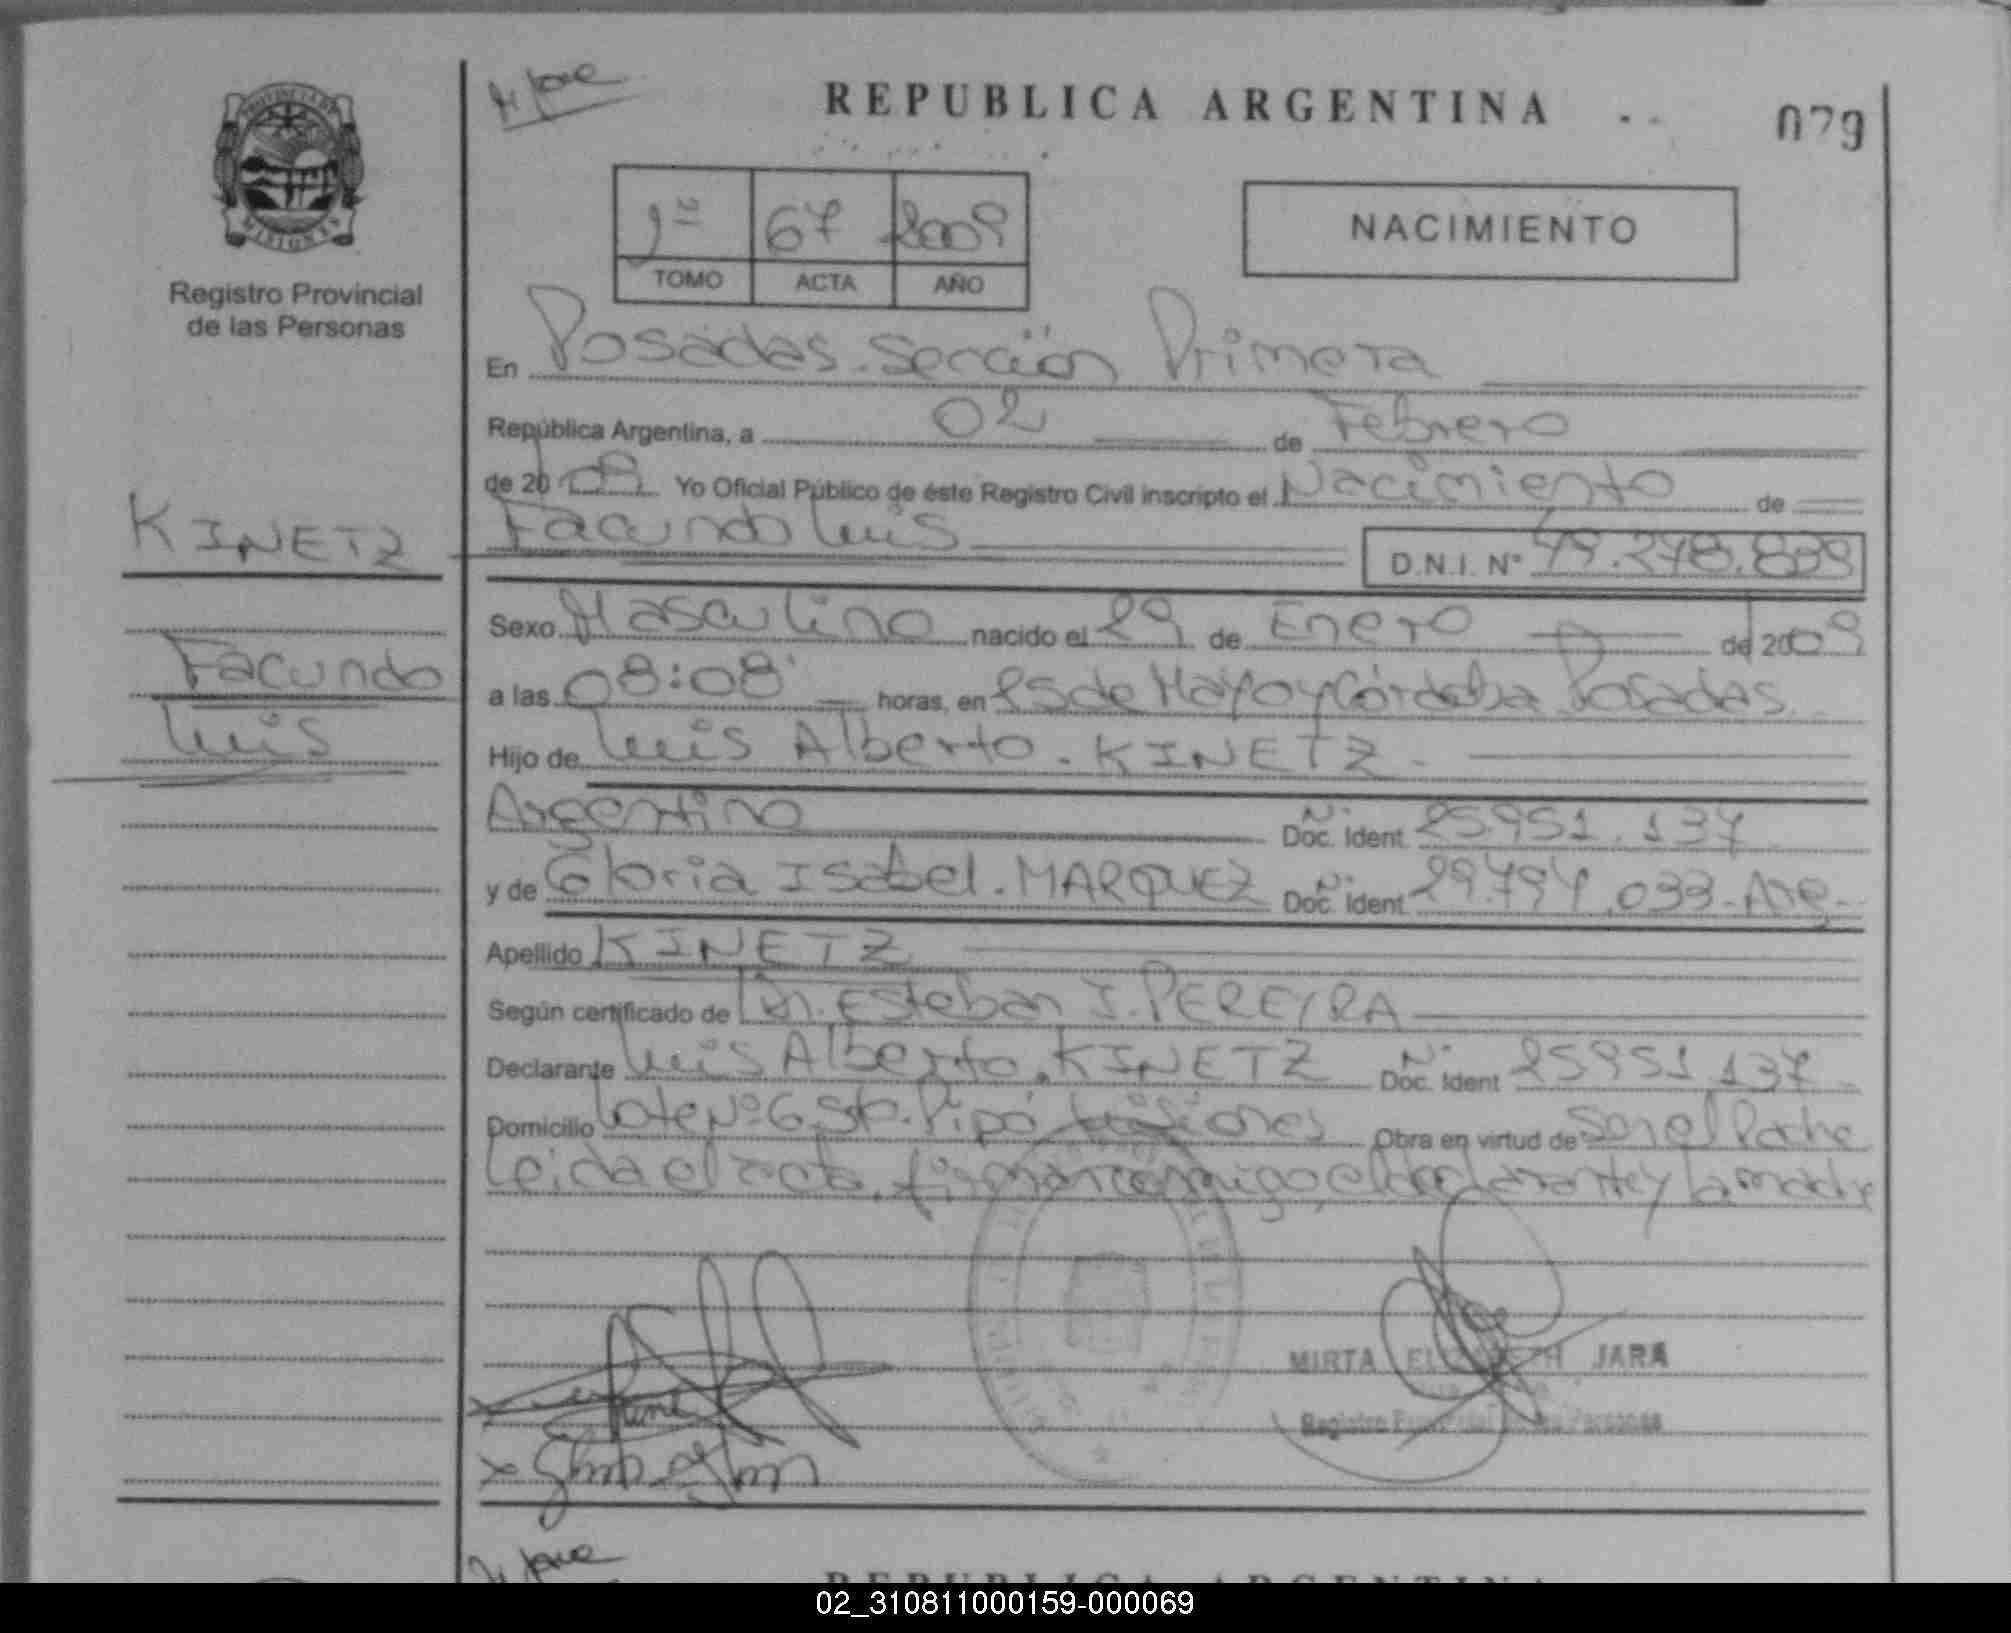 REPUBLICA ARGENTINA
079
PROVINCIA DE
MISIONES
Registro Provincial
de las Personas
1º 67 2009
TOMO ACTA AÑO
NACIMIENTO
En Posadas. Sección Primera
República Argentina, a 02 de Febrero
de 2009 Yo Oficial Público de éste Registro Civil inscripto el Nacimiento de
KINETZ
Facundo Luis
D.N.I. Nº 49.278.839
Sexo Masculino nacido el 29 de Enero de 2009
Facundo
Luis
a las 08:08 horas, en 25 de Mayo y Córdoba Posadas
Hijo de Luis Alberto. KINETZ
Argentino Nº Doc. Ident. 25951.137
y de Gloria Isabel. MARQUEZ Nº Doc. Ident. 29.794.033-Arg.
Apellido KINETZ
Según certificado de Dr. Esteban J. PEREYRA
Declarante Luis Alberto. KINETZ Nº Doc. Ident 25951137
Domicilio Lote Nº 6 Sto. Pipó Misiones Obra en virtud de Ser el Padre
Leida el acta, firman conmigo, el declarante y la madre
MIRTA ELIZABETH JARA
Registro Provincial de las Personas
REPUBLICA ARGENTINA
02_310811000159-000069